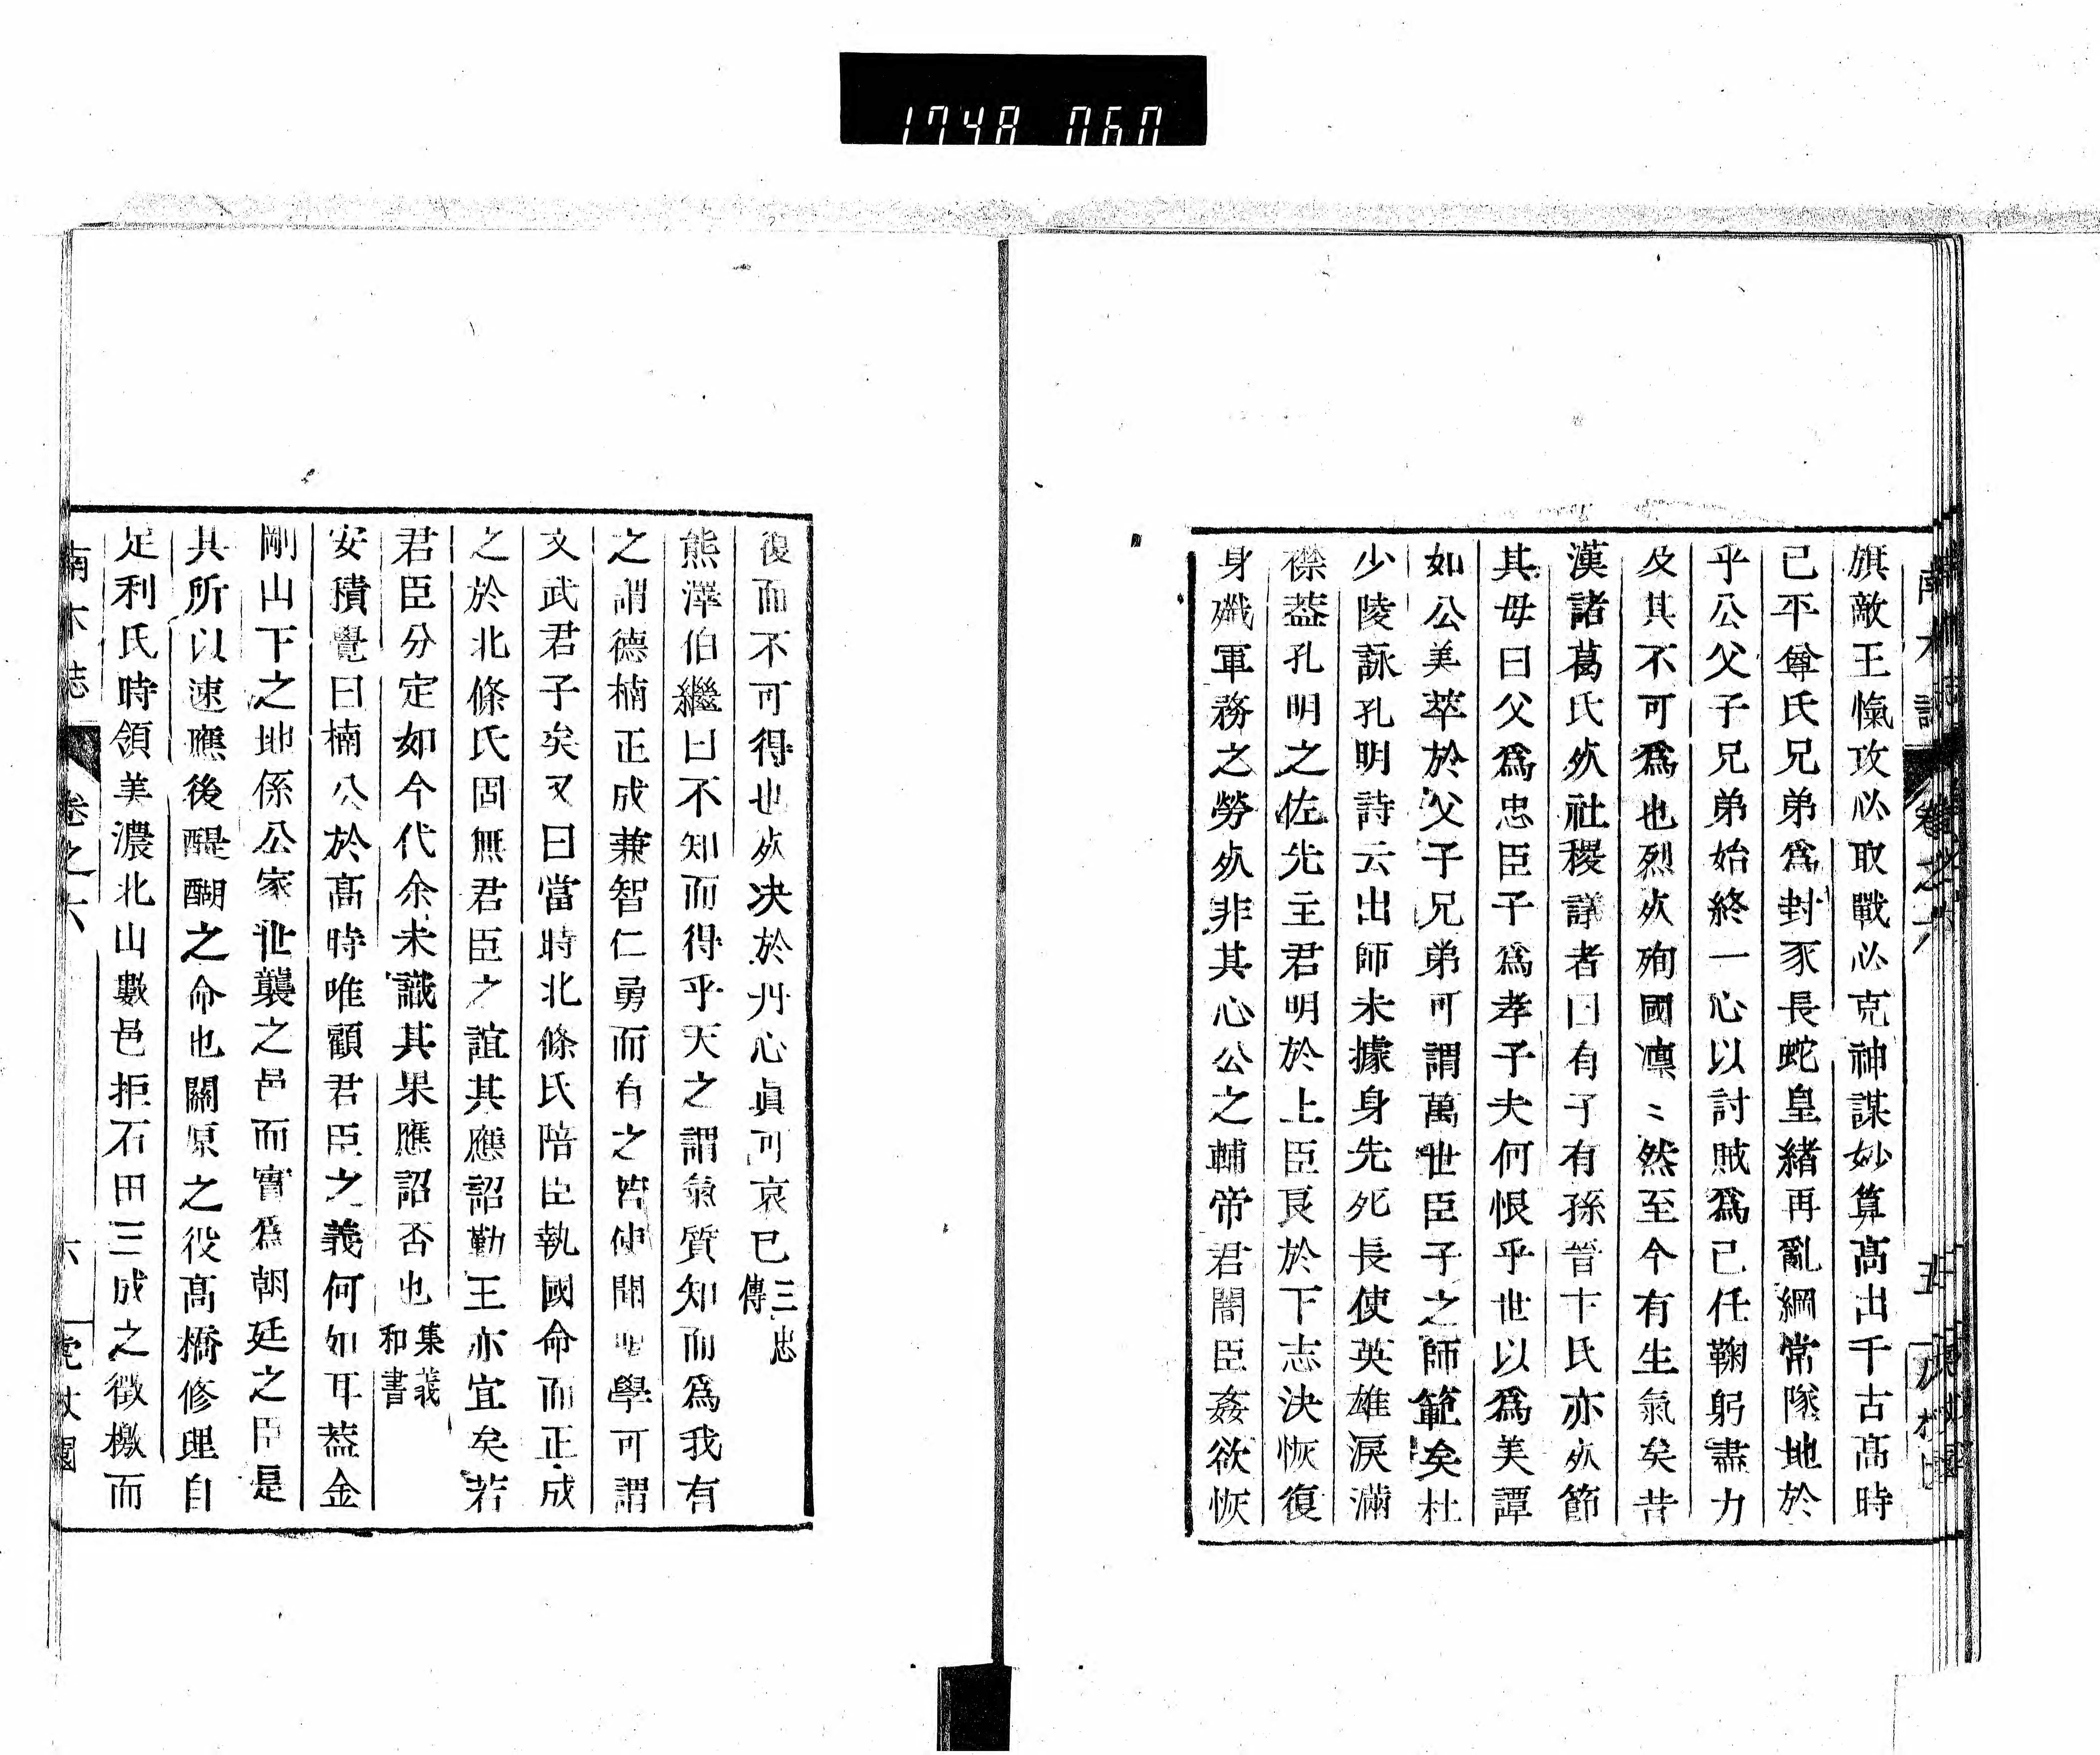 1748 060
旗敵王愾攻必取戰必克神謀妙算髙出千古髙時
已平尊氏兄弟爲封豕長蛇皇緒再亂綱常隊地於
乎公父子兄弟始終一心以討賊爲己任鞠躬盡力
及其不可爲也烈烮殉國凛〻然至今有生氣矣昔
漢諸葛氏死社稷議者曰有子有孫晉卞氏亦死節
其母曰父爲忠臣子爲孝子夫何恨乎世以爲美譚
如公美萃於父子兄弟可謂萬世臣子之師範矣杜
少陵詠孔明詩云出師未據身先死長使英雄淚滿
襟葢孔明之佐先主君明於上臣良於下志決恢復
身殲軍務之勞死非其心公之輔帝君闇臣姦欲恢
復而不可得也死決於丹心眞可哀已三忠傳
熊澤伯繼曰不知而得乎天之謂氣質知而爲我有
之謂德楠正成兼智仁勇而有之皆使聞聖學可謂
文武君子矣又曰當時北條氏陪臣執國命而正成
之於北條氏固無君臣之誼其應詔勤王亦宜矣若
君臣分定如今代余未識其果應詔否也集義和書
安積覺曰楠公於髙時唯顧君臣之義何如耳葢金
剛山下之地係公家世襲之邑而實爲朝廷之臣是
其所以速應後醍醐之命也關原之役髙橋修理自
足利氏時領美濃北山數邑拒石田三成之徵檄而
南木誌 卷之六 六